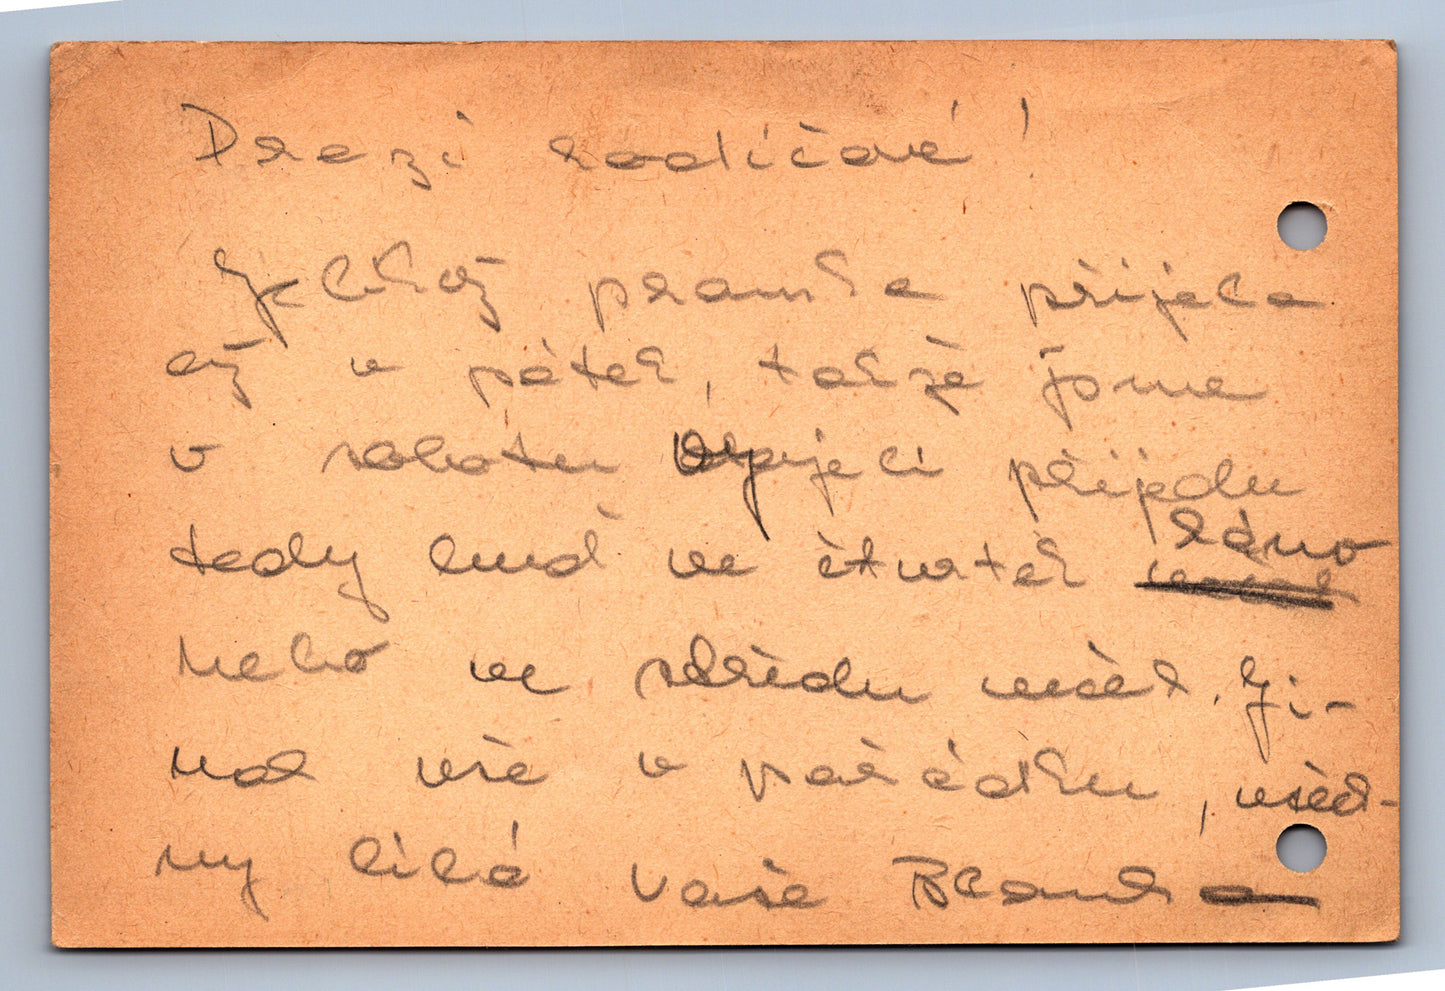 Drazí rodičové!
Jelikož pramka přijela
až v pátek, takže jsme
v sobotu nejeli přijedu
tedy buď ve čtvrtek ráno
nebo ve středu večer. Ji-
nak vše v pořádku, všech-
ny líbá Vaše Blanka